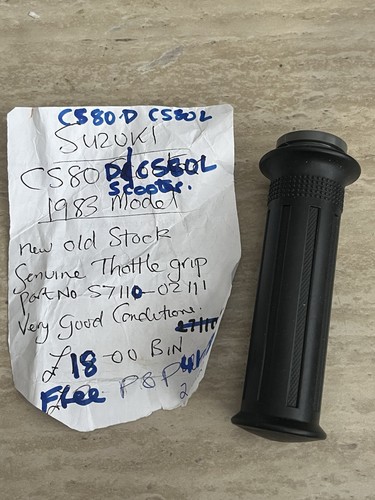 CS80.D CS80L
SUZUKI
CS80 D/CS80L
Scooter.
1983 Model
new old Stock
Genuine Thottle grip
Part No 57110-02111
Very Good Conditions.
£18-00 BIN
Free P&P
2